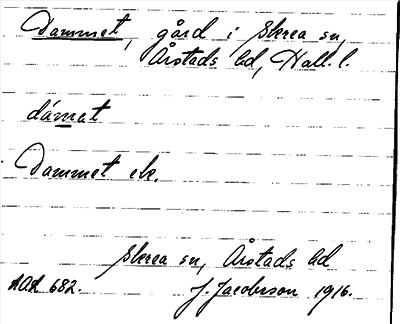 Dammet, gård i Skrea sn,
Årstads hd, Hall. l.
dámat
Dammet ek.
Skrea sn, Årstads hd
AOA 682. J. Jacobsson 1916.